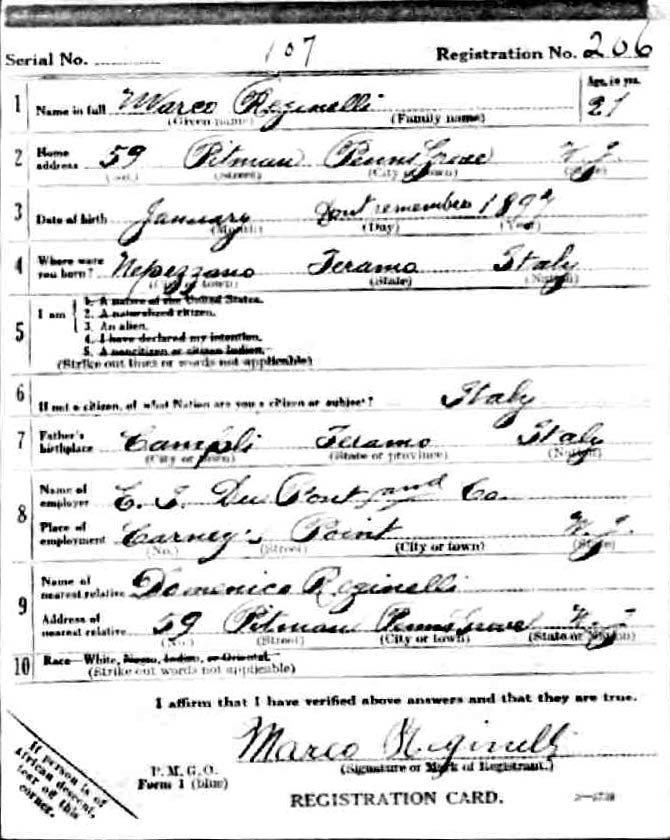 Serial No. 107 Registration No. 206
1 Name in full Marco Reginelli Age, in yrs. 21
(Given name) (Family name)
2 Home address 59 Pitman Pennsgrove N.J.
(No.) (Street) (City or town) (State)
3 Date of birth January Dont remember 1897
(Month) (Day) (Year)
4 Where were you born? Nepezzano Teramo Italy
(City or town) (State) (Nation)
5 I am
1. A native of the United States.
2. A naturalized citizen.
3. An alien.
4. I have declared my intention.
5. A noncitizen or citizen Indian.
(Strike out lines or words not applicable)
6 If not a citizen, of what Nation are you a citizen or subject? Italy
7 Father's birthplace Campli Teramo Italy
(City or town) (State or province) (Nation)
8 Name of employer E. I. Du Pont and Co.
Place of employment Carney's Point N.J.
(No.) (Street) (City or town) (State)
9 Name of nearest relative Domenico Reginelli
Address of nearest relative 59 Pitman Pennsgrove N.J.
(No.) (Street) (City or town) (State or Nation)
10 Race—White, Negro, Indian, or Oriental.
(Strike out words not applicable)
I affirm that I have verified above answers and that they are true.
Marco Reginelli
(Signature or Mark of Registrant.)
P.M.G.O.
Form 1 (blue)
REGISTRATION CARD.
If person is of
African descent,
tear off this
corner.